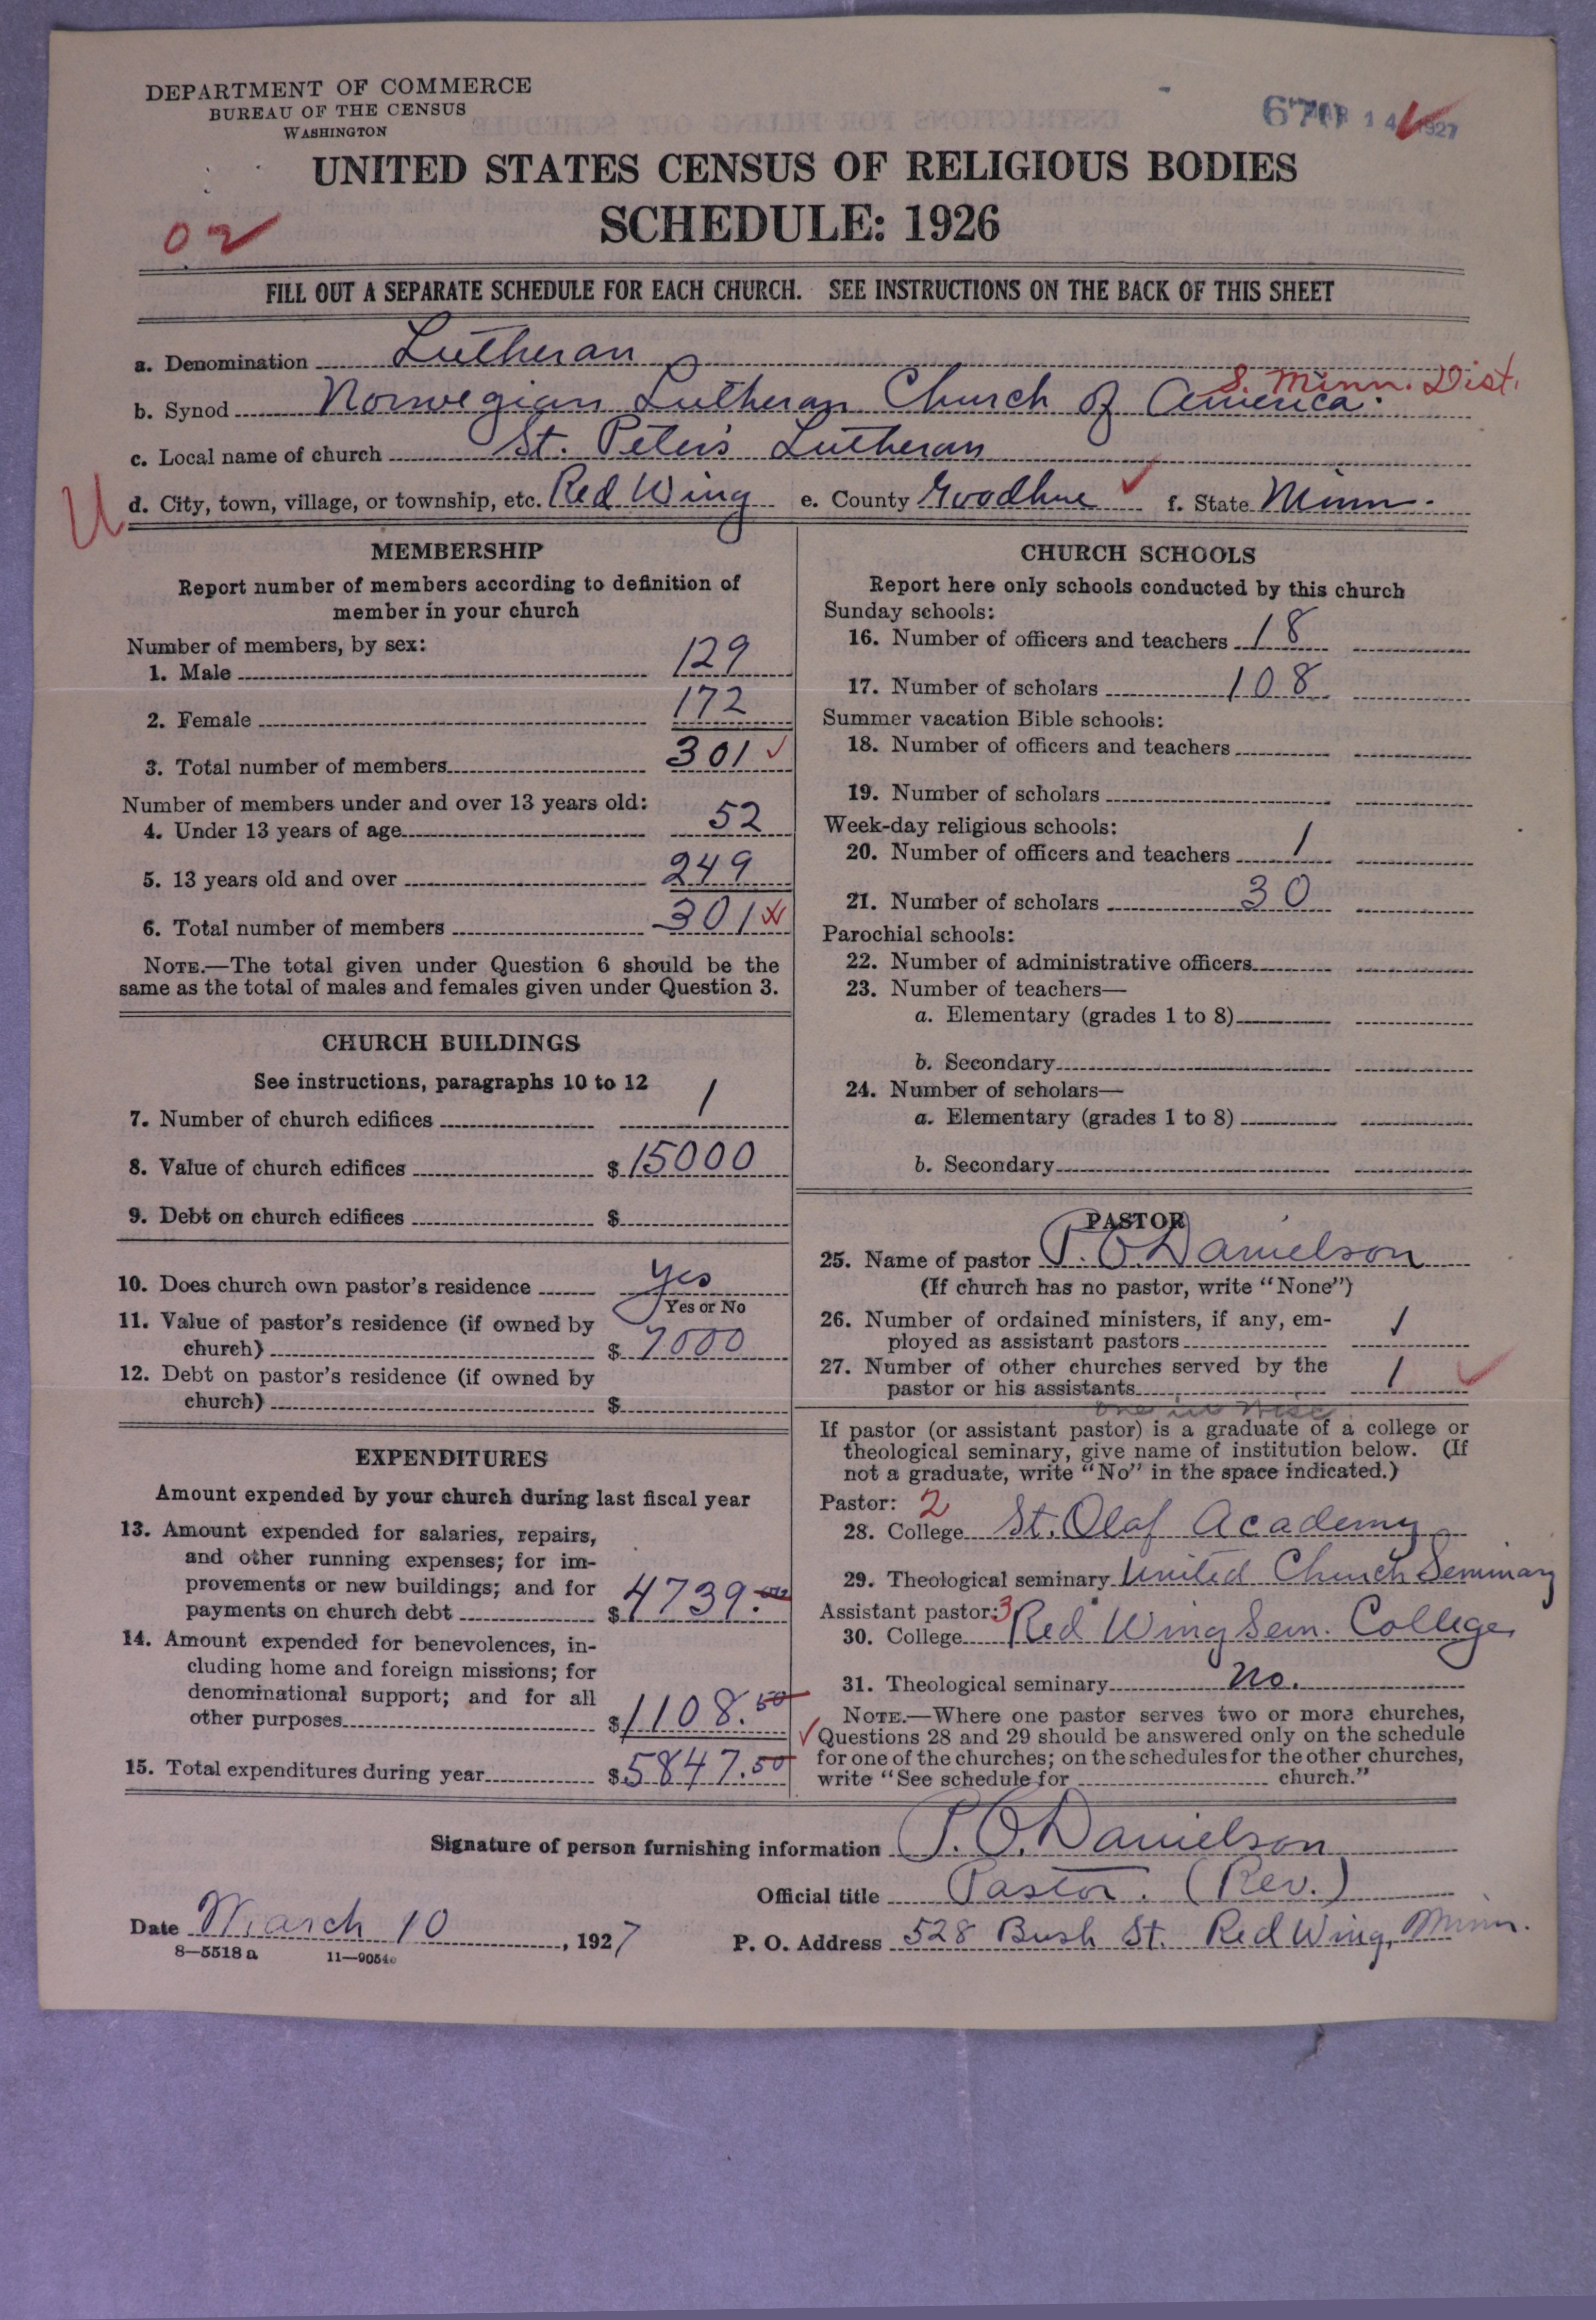 DEPARTMENT OF COMMERCE
BUREAU OF THE CENSUS
WASHINGTON
14 1927
UNITED STATES CENSUS OF RELIGIOUS BODIES
SCHEDULE: 1926
02
FILL OUT A SEPARATE SCHEDULE FOR EACH CHURCH. SEE INSTRUCTIONS ON THE BACK OF THIS SHEET
a. Denomination Lutheran
S. Minn. Dist.
b. Synod Norwegian Lutheran Church of America.
c. Local name of church St. Peter's Lutheran
U
d. City, town, village, or township, etc. Red Wing e. County Goodhue f. State Minn.
MEMBERSHIP
Report number of members according to definition of
member in your church
Number of members, by sex:
1. Male 129
2. Female 172
3. Total number of members 301
Number of members under and over 13 years old:
4. Under 13 years of age 52
5. 13 years old and over 249
6. Total number of members 301
NOTE.—The total given under Question 6 should be the
same as the total of males and females given under Question 3.
CHURCH BUILDINGS
See instructions, paragraphs 10 to 12
7. Number of church edifices 1
8. Value of church edifices $ 15000
9. Debt on church edifices $
10. Does church own pastor's residence yes
Yes or No
11. Value of pastor's residence (if owned by
church) $ 7000
12. Debt on pastor's residence (if owned by
church) $
EXPENDITURES
Amount expended by your church during last fiscal year
13. Amount expended for salaries, repairs,
and other running expenses; for im-
provements or new buildings; and for
payments on church debt $ 4739.00
14. Amount expended for benevolences, in-
cluding home and foreign missions; for
denominational support; and for all
other purposes $ 1108.50
15. Total expenditures during year $ 5847.50
CHURCH SCHOOLS
Report here only schools conducted by this church
Sunday schools:
16. Number of officers and teachers 18
17. Number of scholars 108
Summer vacation Bible schools:
18. Number of officers and teachers
19. Number of scholars
Week-day religious schools:
20. Number of officers and teachers 1
21. Number of scholars 30
Parochial schools:
22. Number of administrative officers
23. Number of teachers—
a. Elementary (grades 1 to 8)
b. Secondary
24. Number of scholars—
a. Elementary (grades 1 to 8)
b. Secondary
PASTOR
25. Name of pastor P. O. Danielson
(If church has no pastor, write "None")
26. Number of ordained ministers, if any, em-
ployed as assistant pastors 1
27. Number of other churches served by the
pastor or his assistants 1
one in Wisc.
If pastor (or assistant pastor) is a graduate of a college or
theological seminary, give name of institution below. (If
not a graduate, write "No" in the space indicated.)
Pastor: 2
28. College St. Olaf Academy
29. Theological seminary United Church Seminary
Assistant pastor: 3
30. College Red Wing Sem. College
31. Theological seminary No.
NOTE.—Where one pastor serves two or more churches,
Questions 28 and 29 should be answered only on the schedule
for one of the churches; on the schedules for the other churches,
write "See schedule for church."
Signature of person furnishing information P. O. Danielson
Official title Pastor. (Rev.)
Date March 10, 1927
P. O. Address 528 Bush St. Red Wing, Minn.
8—5518 a 11—9054